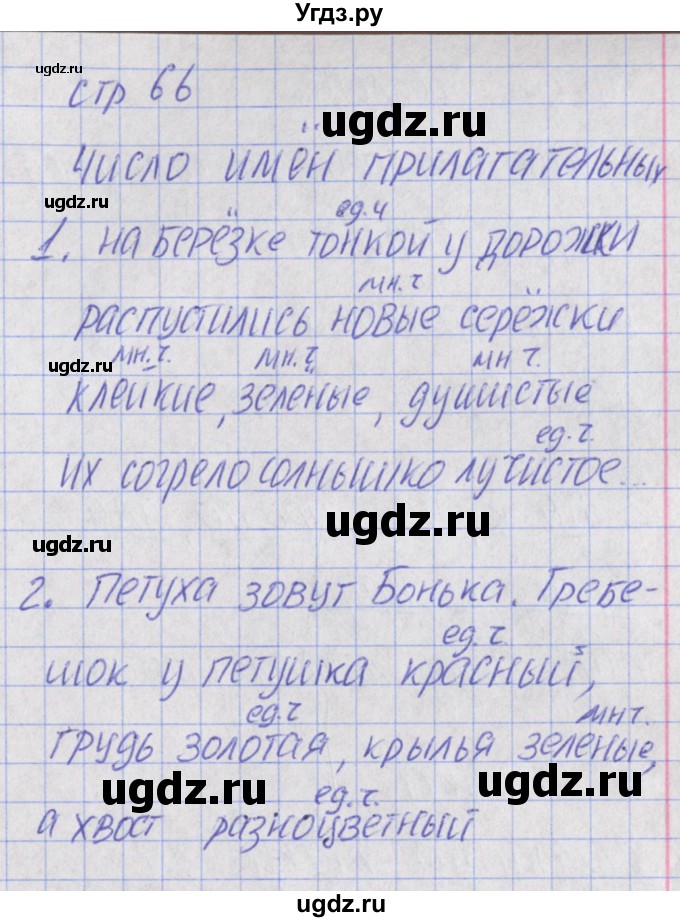 Угдз.ру
ugdz.ru
стр 66
ugdz.ru
Число имён прилагательных
ugdz.ru
ед.ч
1. на берёзке тонкой у дорожки
мн.ч
распустились новые серёжки
ugdz.ru
мн.ч. мн.ч мн ч.
клейкие, зелёные, душистые
ед.ч.
их согрело солнышко лучистое...
ugdz.ru
ugdz.ru
2. Петуха зовут Бонька. Гребе-
ед.ч.
шок у петушка красный,
ugdz.ru
ед.ч мн ч.
грудь золотая, крылья зелёные,
ugdz.ru ugdz.ru
ед.ч.
а хвост разноцветный
ugdz.ru